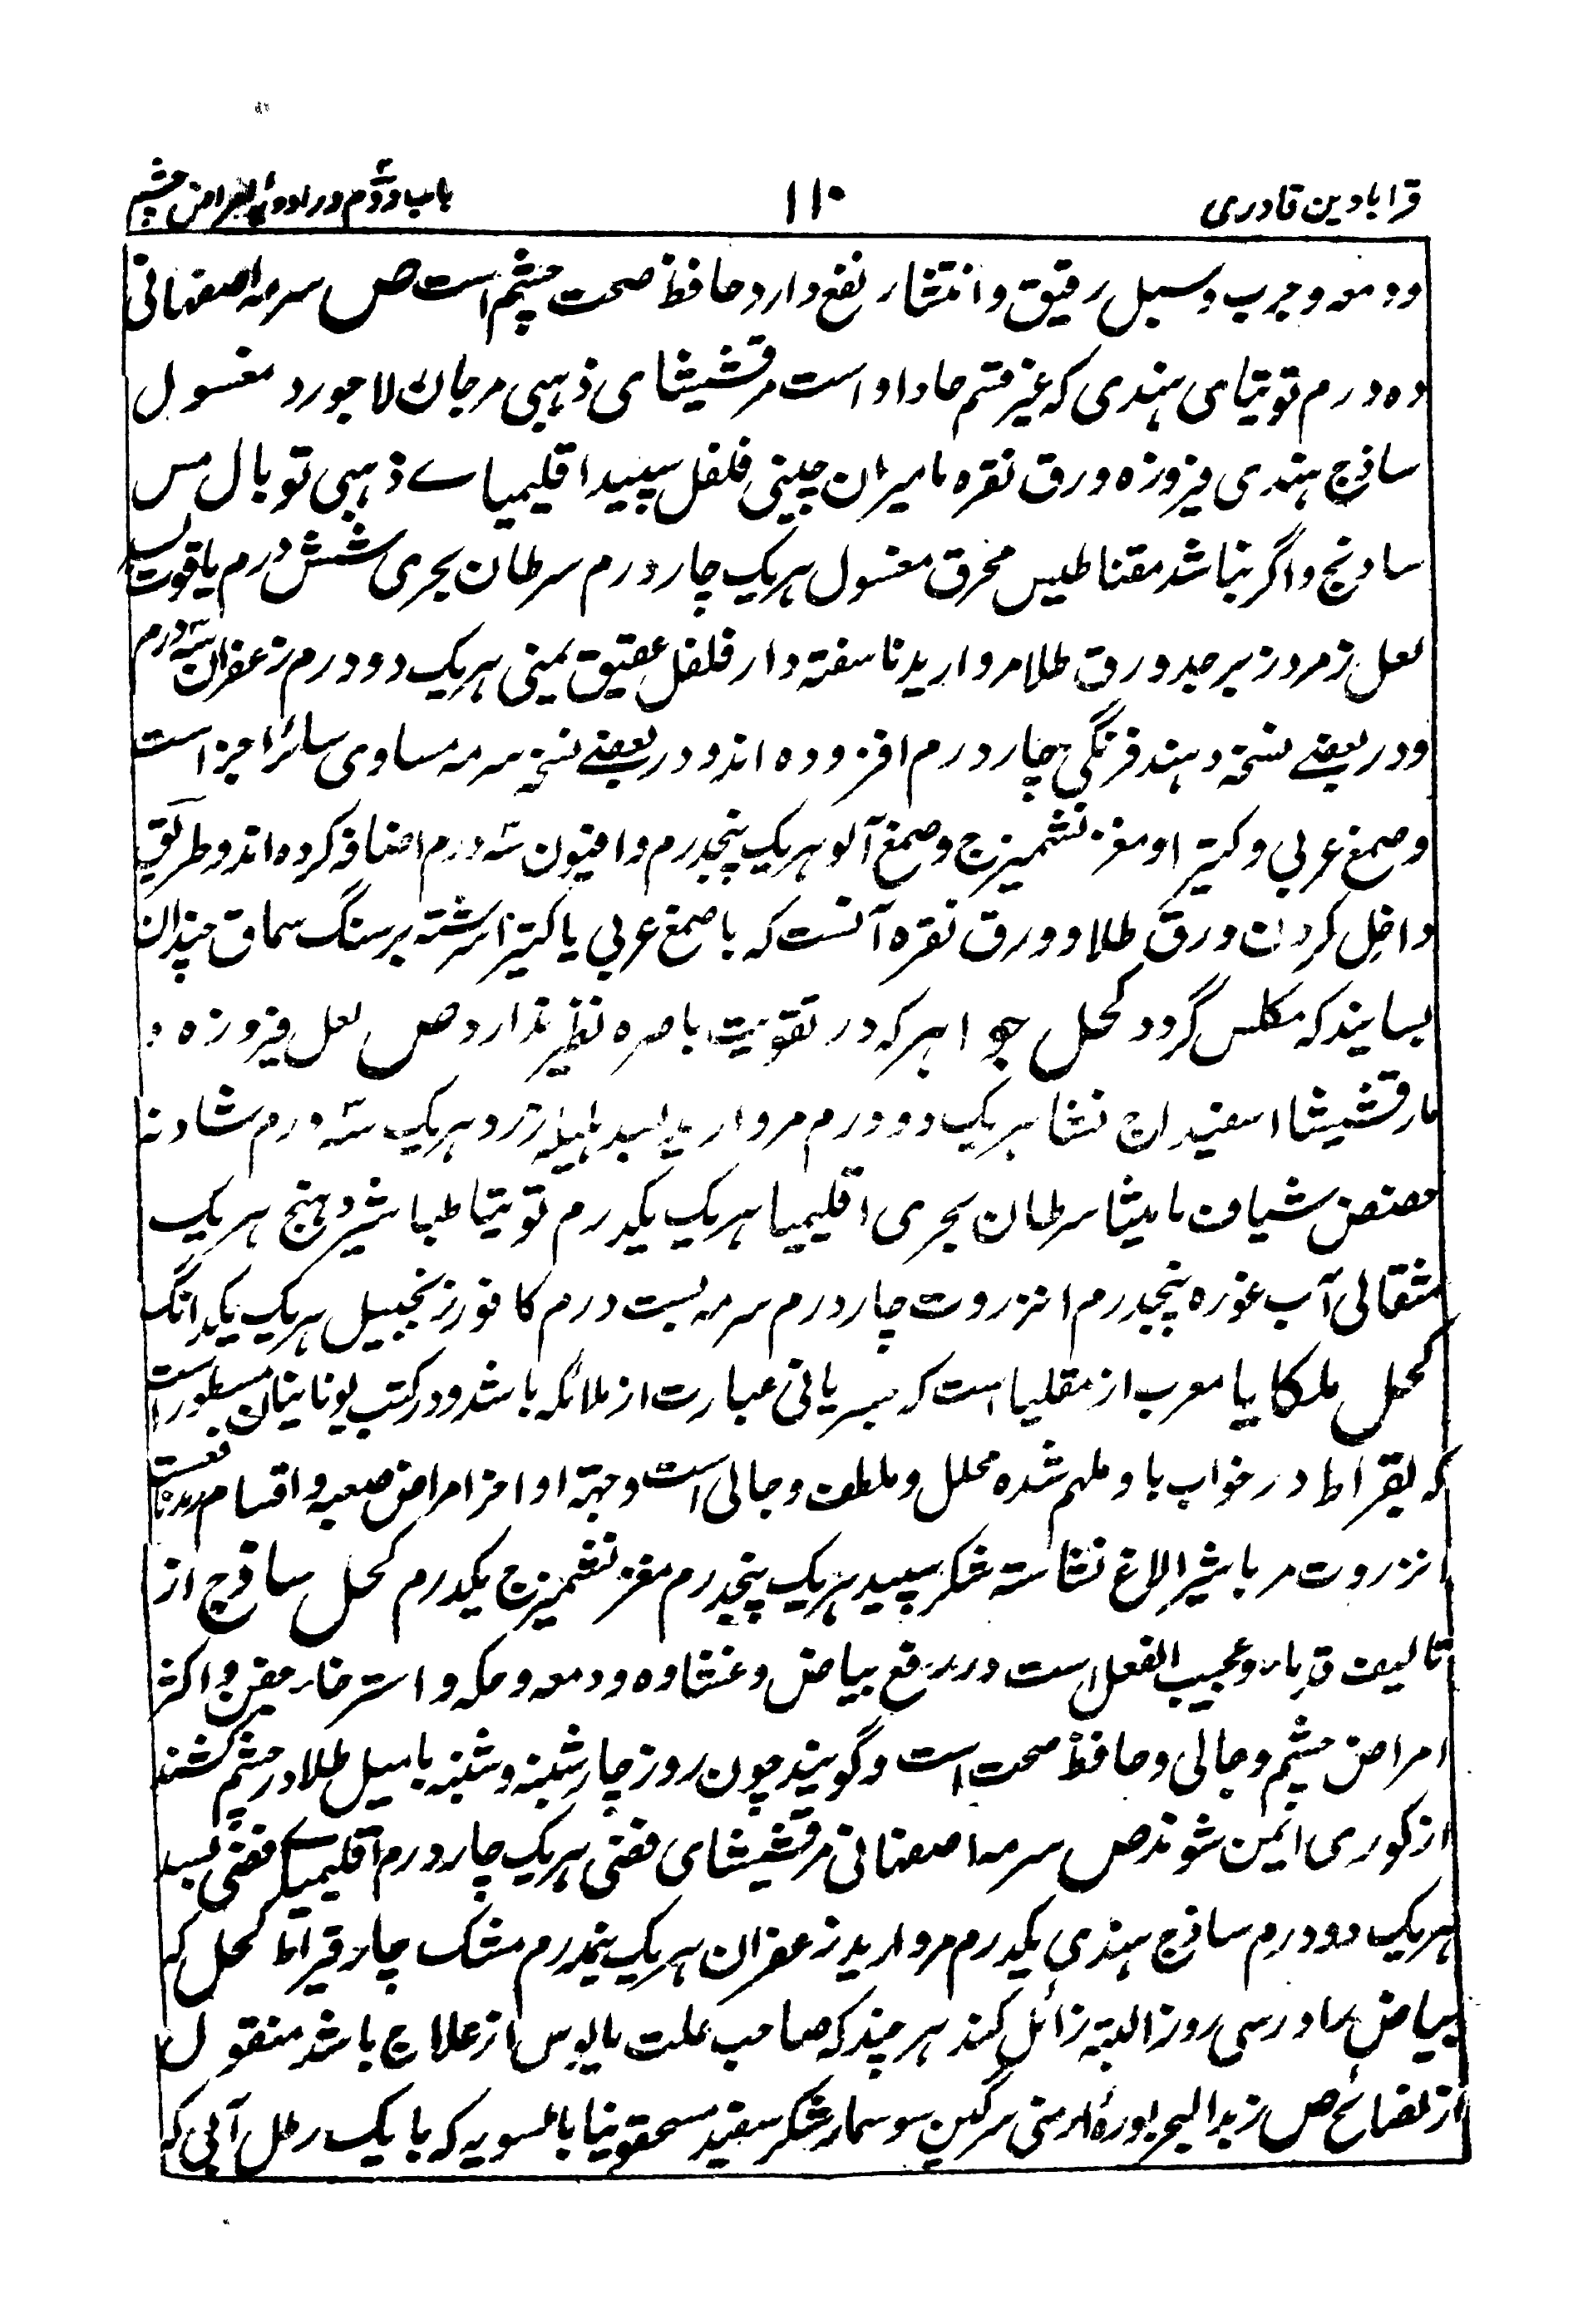 قرابادین قادری ۱۱۰ باب دوم در ادویه امراض چشم
ودمعه وجرب وسبل رقیق وانتشار نفع دارد حافظ صحت چشم است ص سرمه اصفهانی
ده درم توتیای هندی که غیر قسم حاد او است مرقشیشای ذهبی مرجان لاجورد مغسول
ساذج هندی فیروزه ورق نقره مامیران چینی فلفل سپید اقلیمیاے ذهبی توبال مس
سادنج واگر نباشد مقناطیس محرق مغسول هریک چار درم سرطان بحری شش درم یاقوت بسد
لعل زمرد زبرجد ورق طلا مروارید ناسفته دار فلفل عقیق یمنی هریک دو درم زعفران سه درم
ودر بعضے نسخه دهنه فرنگی چار درم افزوده اند ودر بعضے نسخه سرمه مساوی سائر اجزاست
وصمغ عربی وکتیرا ومغز تشمیزج وصمغ آلو هریک پنجدرم وافیون سه درم اضافه کرده اند وطریق
داخل کردن ورق طلا وورق نقره آنست که با صمغ عربی یا کتیرا سرشته بر سنگ سماق چندان
بسایند که مکلس گردد کحل جواهر که در تقویت باصره نظیر ندارد ص لعل فیروزه و
مارقشیشا اسفیداج نشا هریک دو درم مروارید بسد هلیله زرد هریک سه درم شادنه
شیاف مامیثا سرطان بحری اقلیمیا هریک یکدرم توتیا طباشیر دهنج هریک
مثقالی آب غوره پنجدرم انزروت چار درم سرمه بست درم کافور زنجبیل هریک یکدانگ
کحل ملکایا معرب از مقلیا است که بسریانی عبارت از ملائکه باشد ودر کتب یونانیان مسطور است
که بقراط در خواب باو ملهم شده محلل وملطف وجالی است وجهة اواخر امراض صعبه واقسام رمد نافعست
انزروت مربا بشیر الاغ نشاسته شکر سپید هریک پنجدرم مغز تشمیزج یکدرم کحل ساذج از
تالیف قدما وعجیب الفعل است در رفع بیاض وغشاوه ودمعه وحکه واسترخاء جفن واکثر
امراض چشم وجالی وحافظ صحت است وگویند چون روز چار شنبه وشنبه با میل طلا در چشم کشند
از کوری ایمن شوند ص سرمه اصفهانی مرقشیشای فضی هریک چار درم اقلیمیاے فضی بسد
هریک دو درم ساذج هندی یکدرم مروارید زعفران هریک نیمدرم مشک چار قیراط کحل که
بیاض را در سی روز البته زائل کند هر چند که صاحب علت مایوس از علاج باشد منقول
از نصائح ص زبد البحر بوره ارمنی سرگین سوسمار شکر سفید مسحقونیا بالسویه که با یک رطل آبی که